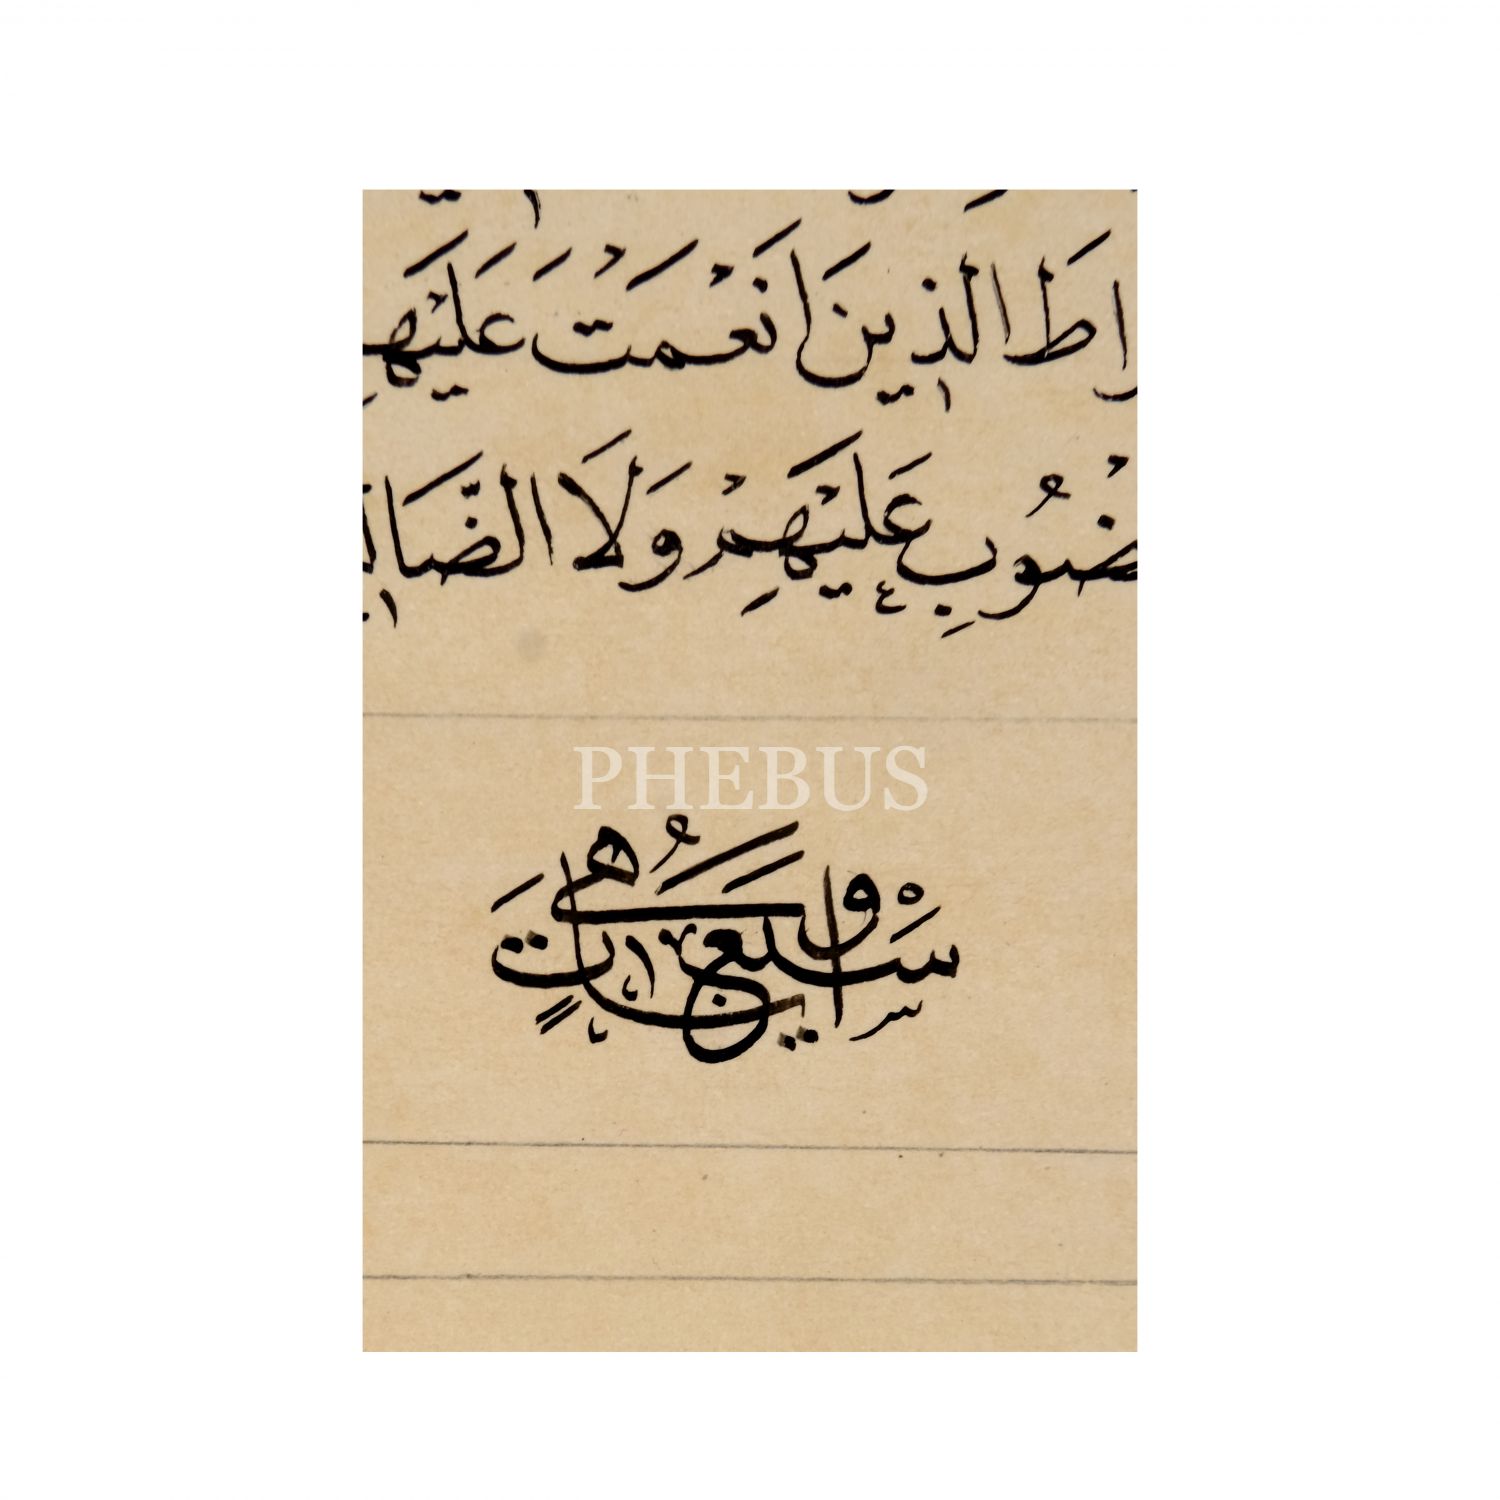 رَاطَ الَّذِينَ اَنْعَمْتَ عَلَيْهِ
ضُوبِ عَلَيْهِمْ وَلَا الضَّالِّ
PHEBUS
وَهِيَ سَبْعُ اٰيَاتٍ